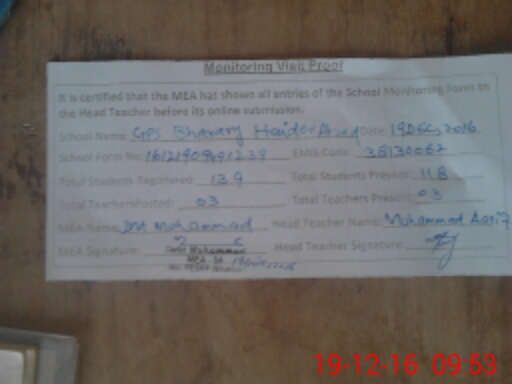 Monitoring Visit Proof
It is certified that the MEA has shown all entries of the School Monitoring Form to
the Head Teacher before its online submission.
School Name: GPS Haider Date: 19 Dec, 2016
School Form No: EMIS Code:
Total Students Registered: 139 Total Students Present: 118
Total Teachers Posted: 03 Total Teachers Present: 03
MEA Name: Dost Muhammad Head Teacher Name: Muhammad
MEA Signature: Head Teacher Signature:
Dost Muhammad
MEA - 04
19-12-16 09:53